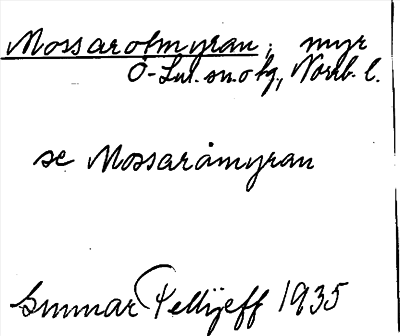 Mossarotmyran; myr
Ö-Lul. sn. o tg., Norrb. l.
se Mossaråmyran
Gunnar Pellijeff 1935